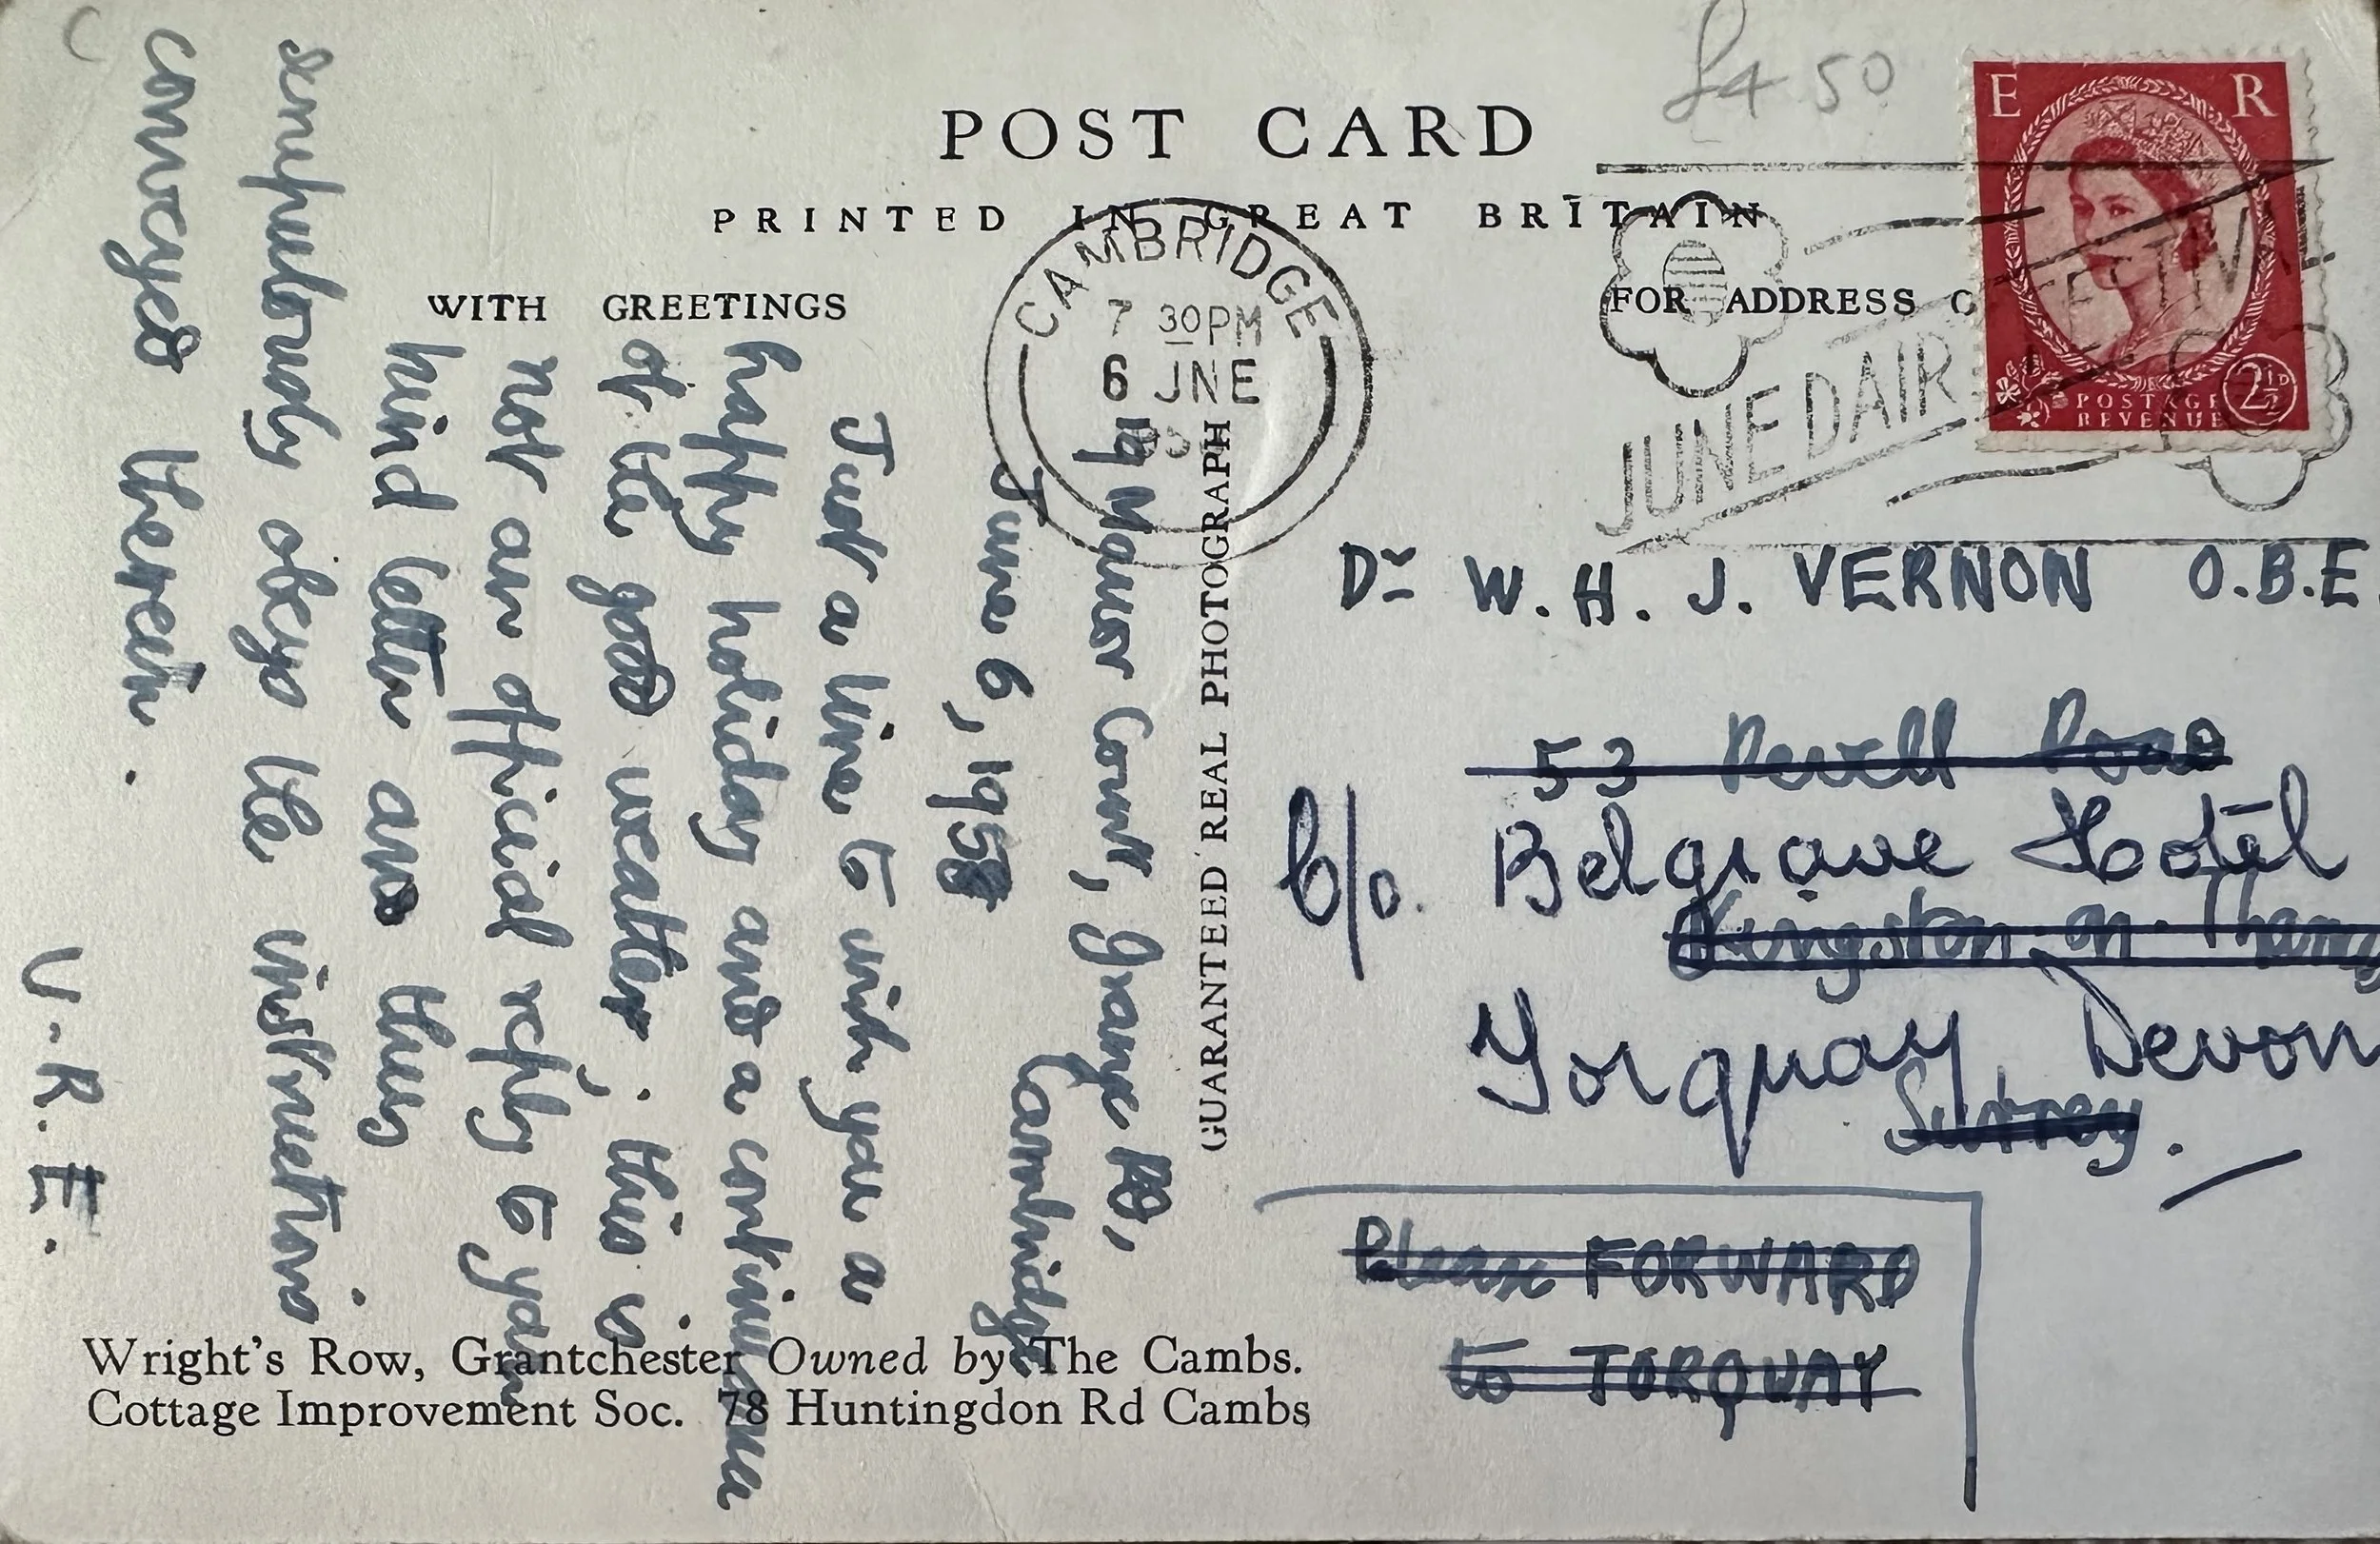 £4 50
POST CARD
PRINTED IN GREAT BRITAIN
WITH GREETINGS
FOR ADDRESS O
CAMBRIDGE
7 30PM
6 JNE
JUNE DAIRY FESTIVAL
E R
POSTAGE
REVENUE
2½D
19 Manor Court, Grange RD,
Cambridge
June 6, 1958
Just a line to wish you a
happy holiday and a continuance
of the good weather; this is
not an official reply to your
kind letter and thus
scrupulously obeys the instructions
conveyed therein.
V.R.E.
GUARANTEED REAL PHOTOGRAPH
Dr W. H. J. VERNON O.B.E.
53 Revell Road
C/o. Belgrave Hotel
Kingston-on-Thames
Torquay Devon
Surrey.
Please FORWARD
to TORQUAY
Wright's Row, Grantchester Owned by The Cambs.
Cottage Improvement Soc. 78 Huntingdon Rd Cambs